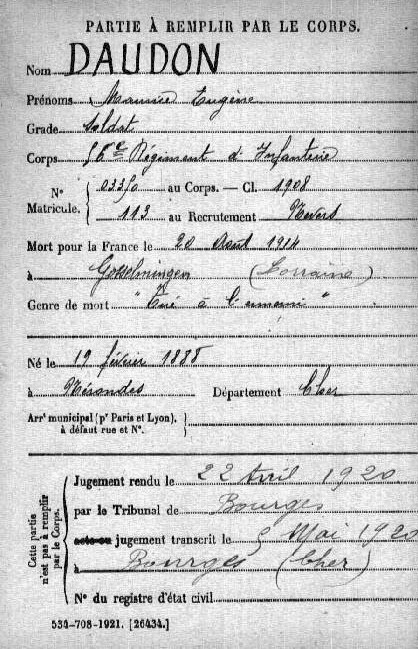 PARTIE À REMPLIR PAR LE CORPS.
Nom DAUDON
Prénoms Maurice Eugène
Grade Soldat
Corps 56e Régiment d'Infanterie
N° Matricule. { 03350 au Corps. — Cl. 1908
113 au Recrutement Nevers
Mort pour la France le 20 Août 1914
à (Lorraine)
Genre de mort "Tué à l'ennemi"
Né le 19 février 1888
à Nérondes Département Cher
Arrt municipal (pr Paris et Lyon),
à défaut rue et N°.
Cette partie n'est pas à remplir par le Corps.
Jugement rendu le 22 Avril 1920
par le Tribunal de Bourges
acte ou jugement transcrit le 5 Mai 1920
à Bourges (Cher)
N° du registre d'état civil
534-708-1921. [26434.]